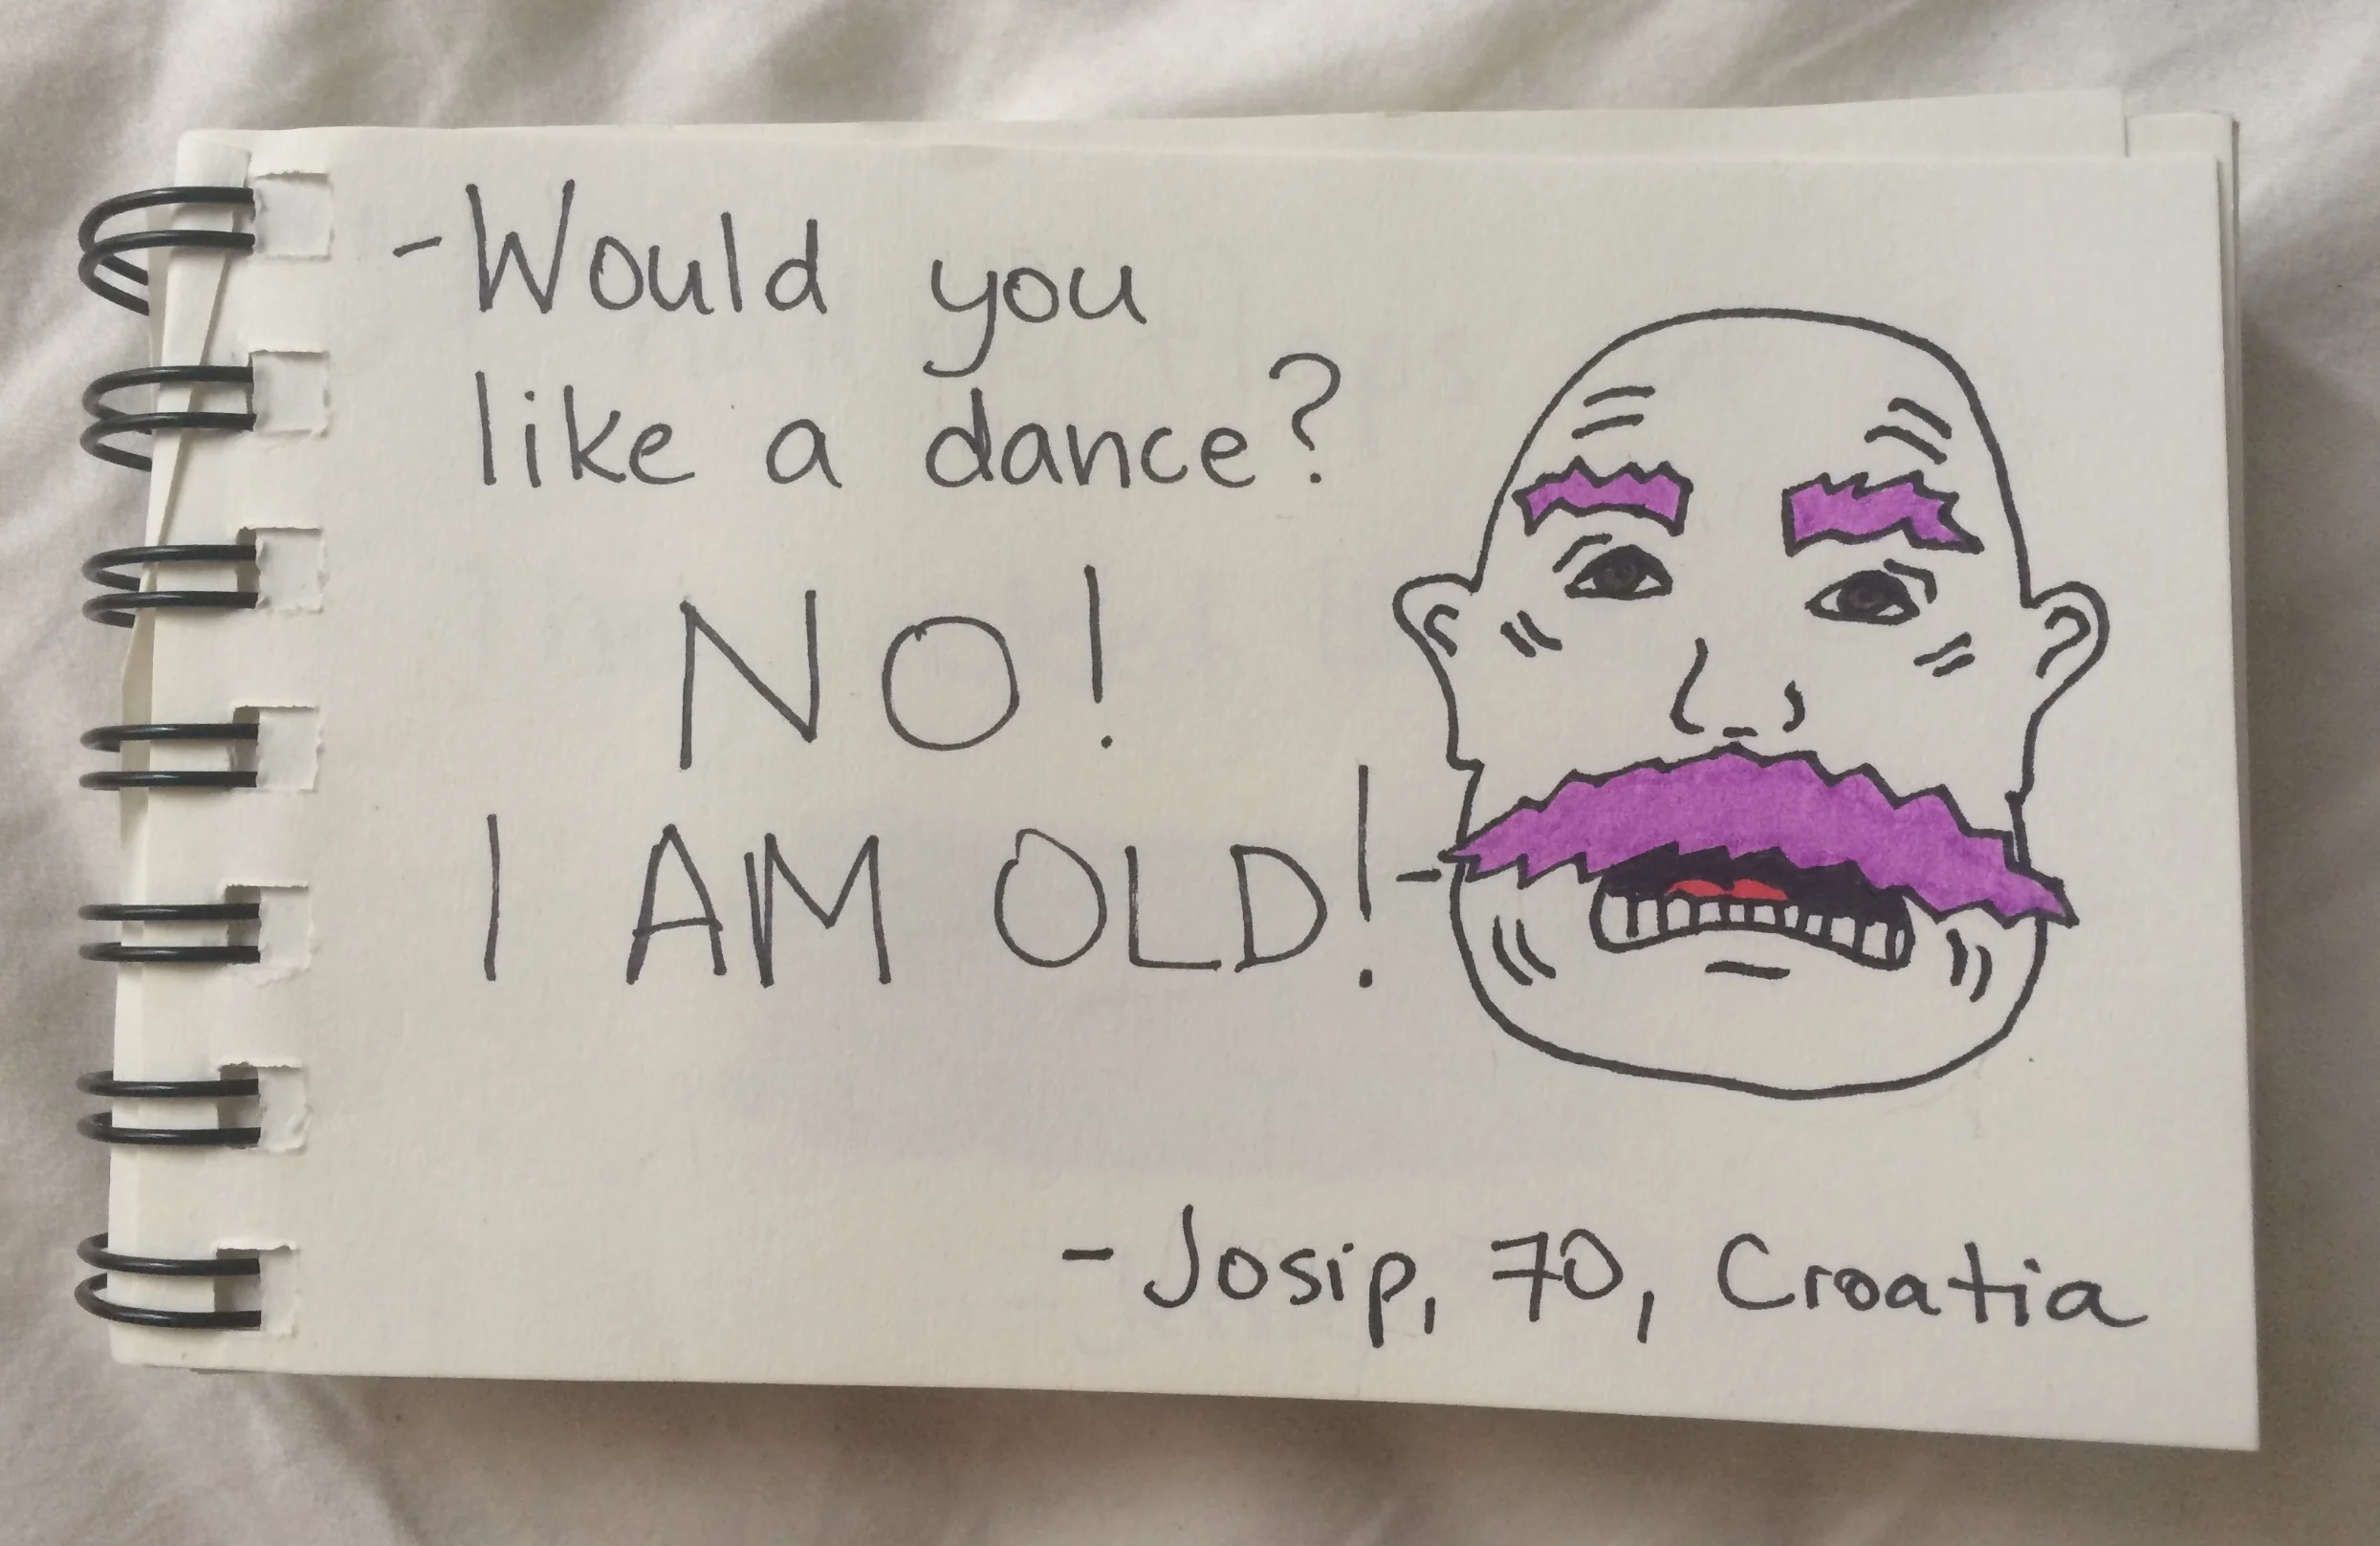 -Would you
like a dance?
NO!
I AM OLD!-
-Josip, 70, Croatia